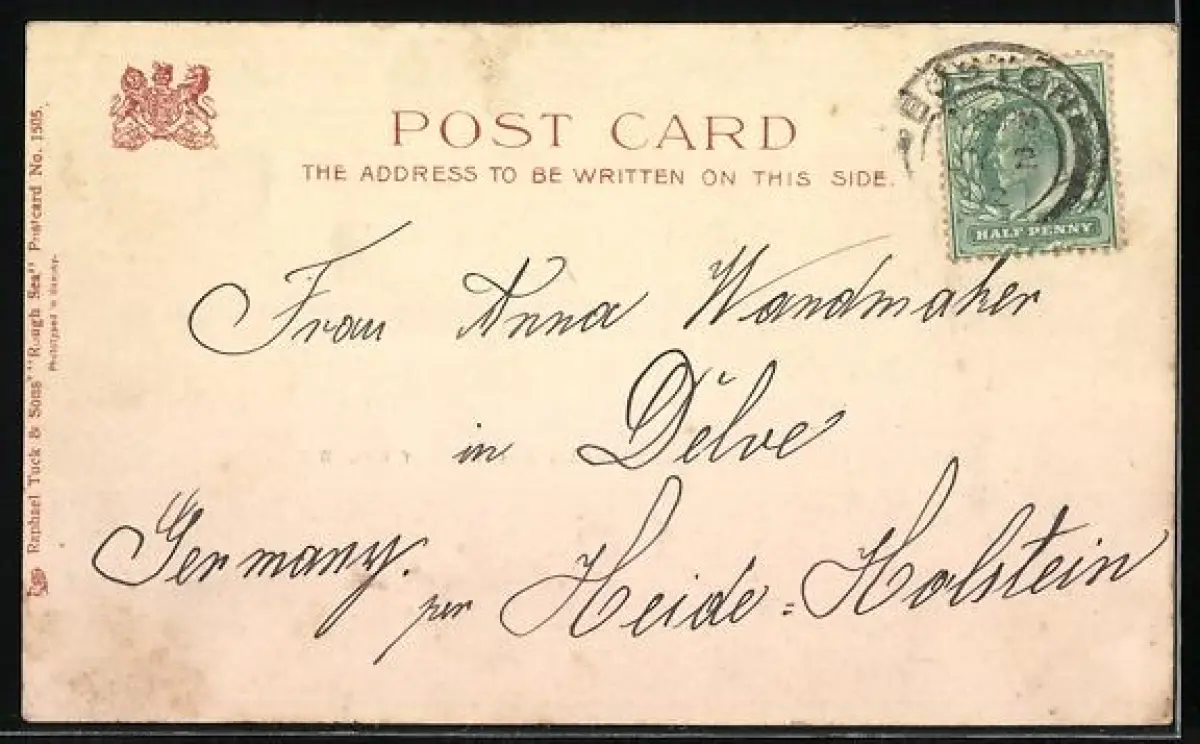 POST CARD
THE ADDRESS TO BE WRITTEN ON THIS SIDE.
HALF PENNY
Frau Anna Wandmaker
in Delve
Germany.
per Heide=Holstein
Raphael Tuck & Sons' "Rough Sea" Postcard No. 1505.